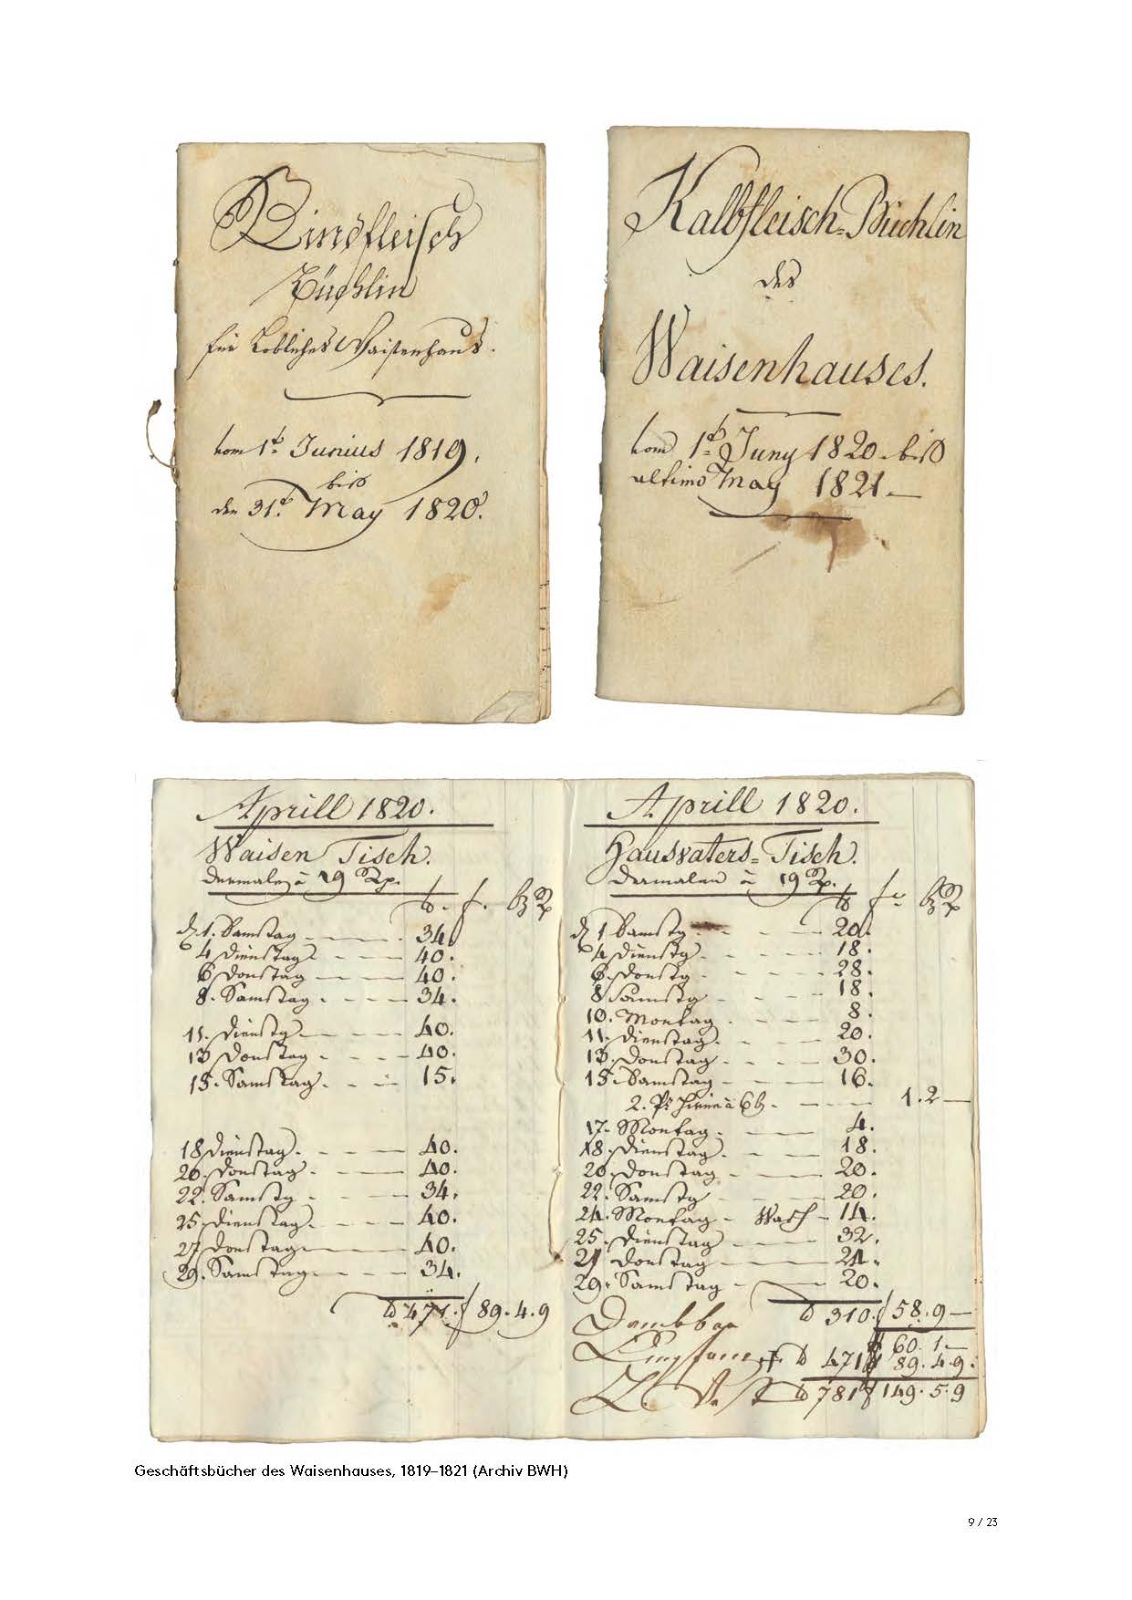 Rindfleisch
Büchlin
für Lobliches Waisenhaus.
vom 1t. Junius 1819.
biss
den 31t. May 1820.
Kalbfleisch-Büchlin
des
Waisenhauses.
vom 1t. Juny 1820. biss
ultimo May 1821.
Aprill 1820.
Waisen Tisch.
dermalen à 19 Rp.
lb. f. Bz Rp
d. 1. Samstag 34.
4 Dienstag 40.
6 Donstag 40.
8. Samstag 34.
11. Dienstg 40.
13 Donstag 40.
15. Samstag 15.
18 Dienstag 40.
20. Donstag 40.
22. Samstg 34.
25. Dienstag 40.
27 Donstag 40.
29. Samstag 34.
lb 471. f 89.4.9
Aprill 1820.
Hausvaters-Tisch.
dermalen à 19 Rp.
lb f Bz Rp
d. 1 Samstg 20.
4 Dienstg 18.
6. Donstg 28.
8 Samstg 18.
10. Montag 8.
11. Dienstag 20.
13. Donstag 30.
15. Samstag 16.
2. à 6 1.2—
17. Montag 4.
18. Dienstag 18.
20. Donstag 20.
22. Samstg 20.
24. Montag - Wasch - 14.
25. Dienstag 32.
27 Donstag 24.
29. Samstag 20.
lb 310. f 58.9—
60.1—
lb 471 f 89.4.9.
lb 781 f 149.5.9
Geschäftsbücher des Waisenhauses, 1819–1821 (Archiv BWH)
9 / 23